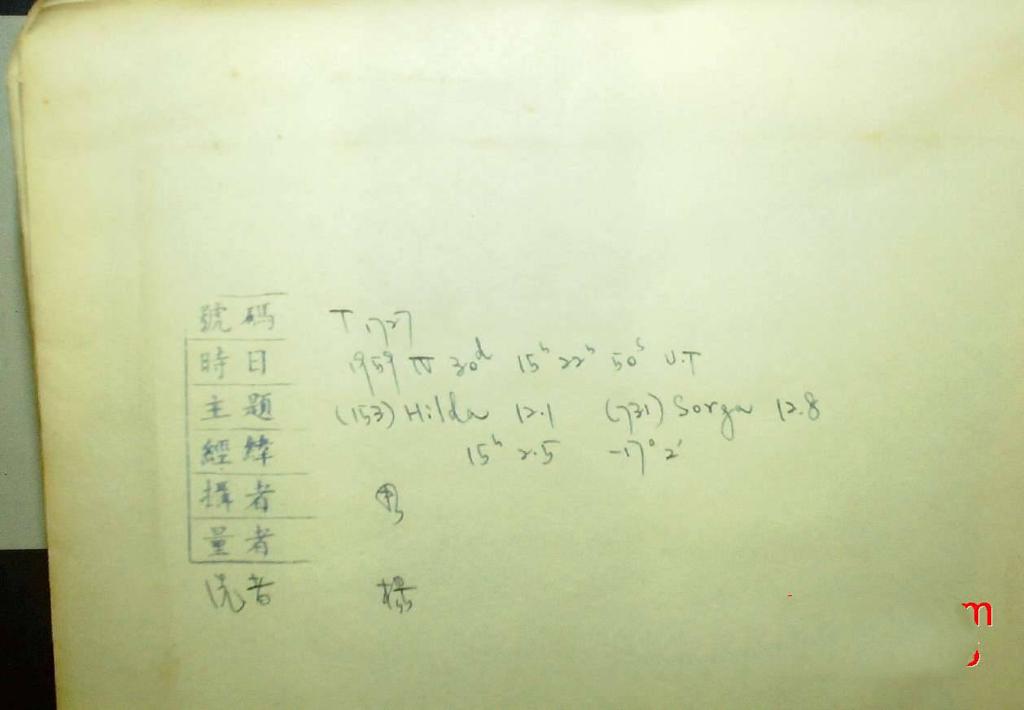 號碼 T 1727
時日 1959 IV 30d 15h 22m 50s U.T
主題 (153) Hilda 12.1 (731) Sorga 12.8
經緯 15h 2.5 -17° 2'
攝者
量者
洗者 楊